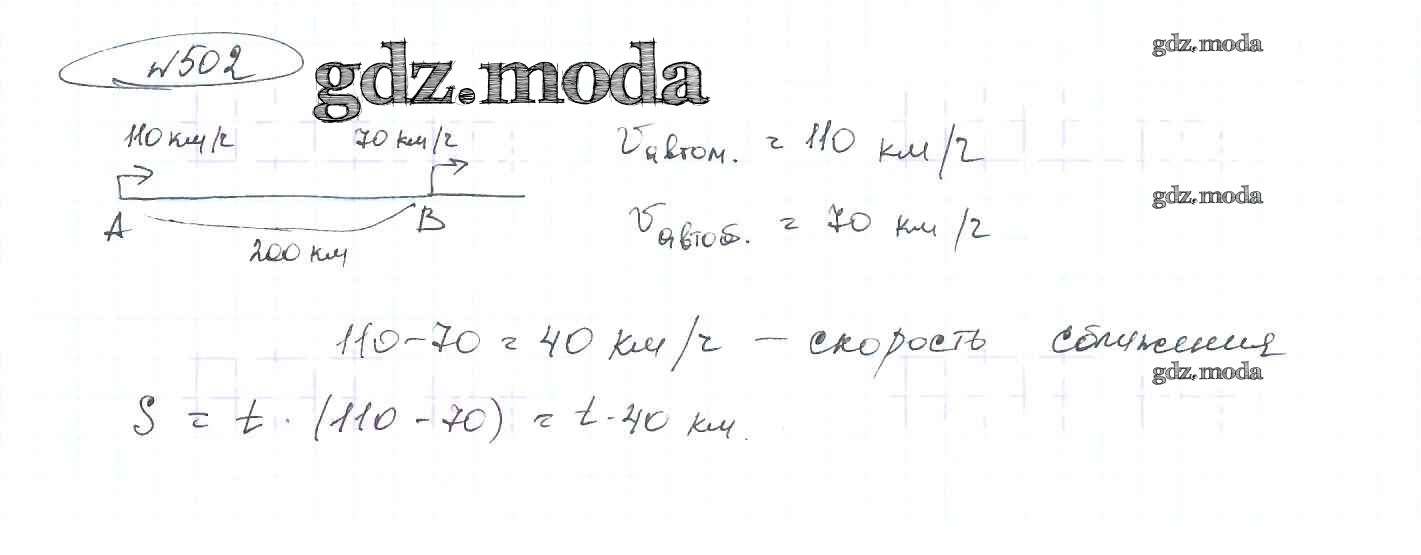 №502
gdz.moda
gdz.moda
110 км/ч
70 км/ч
Vавтом. = 110 км/ч
A
B
200 км
gdz.moda
Vавтоб. = 70 км/ч
110-70 = 40 км/ч — скорость сближения
gdz.moda
S = t · (110 - 70) = t · 40 км.